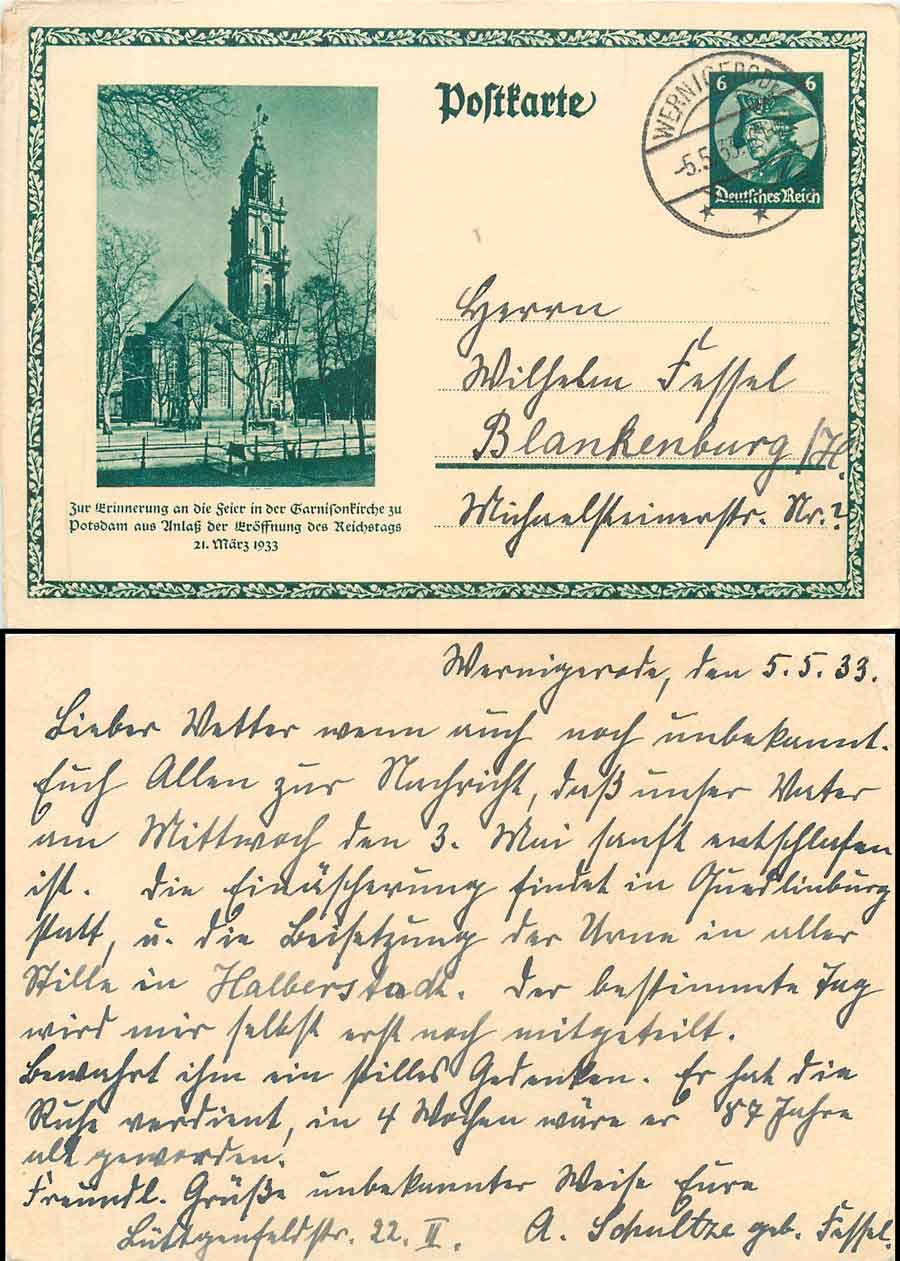 Postkarte
WERNIGERODE
-5.5.33.
6 6
Deutsches Reich
Herrn
Wilhelm Fessel
Blankenburg /H.
Michaelsteinerstr. Nr. ?
Zur Erinnerung an die Feier in der Garnisonkirche zu
Potsdam aus Anlaß der Eröffnung des Reichstags
21. März 1933
Wernigerode, den 5.5.33.
Lieber Vetter wenn auch noch unbekannt.
Euch Allen zur Nachricht, daß unser Vater
am Mittwoch den 3. Mai sanft entschlafen
ist. Die Einäscherung findet in Quedlinburg
statt, u. die Beisetzung der Urne in aller
Stille in Halberstadt. Der bestimmte Tag
wird mir selbst erst noch mitgeteilt.
Bewahrt ihm ein stilles Gedenken. Er hat die
Ruhe verdient, in 4 Wochen wäre er 87 Jahre
alt geworden.
Freundl. Grüße unbekannter Weise Eure
Lüttgenfeldstr. 22. II. A. Schultze geb. Fessel.